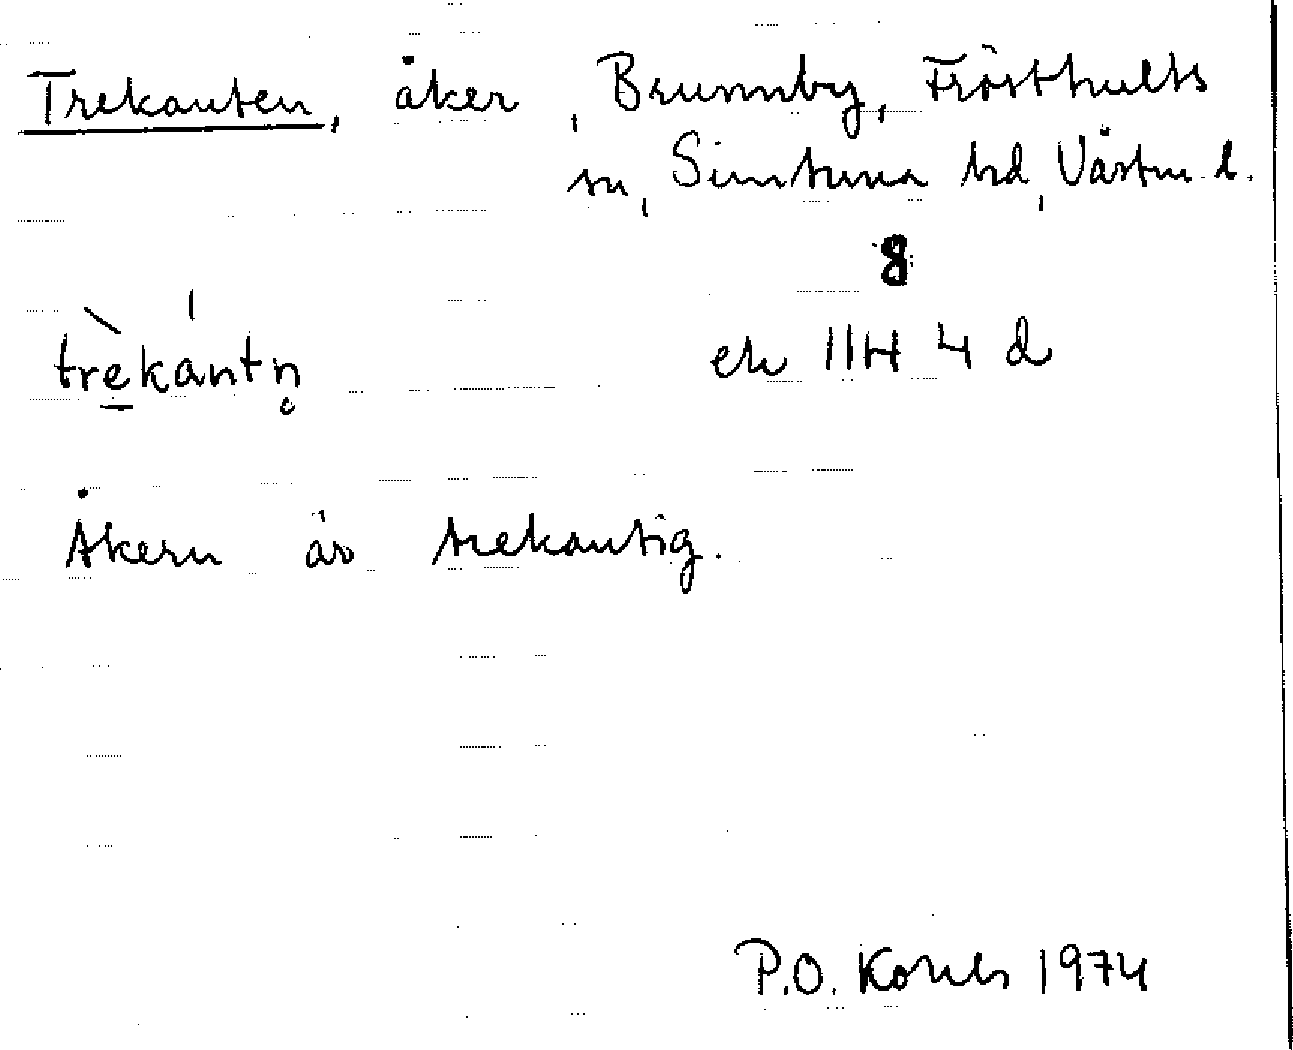 Trekanten, åker, Brunnby, Frösthults
sn, Simtuna hd, Västm. l.
8
ek 11H 4 d
trèkántn̥
Åkern är trekantig.
P.O. 1974